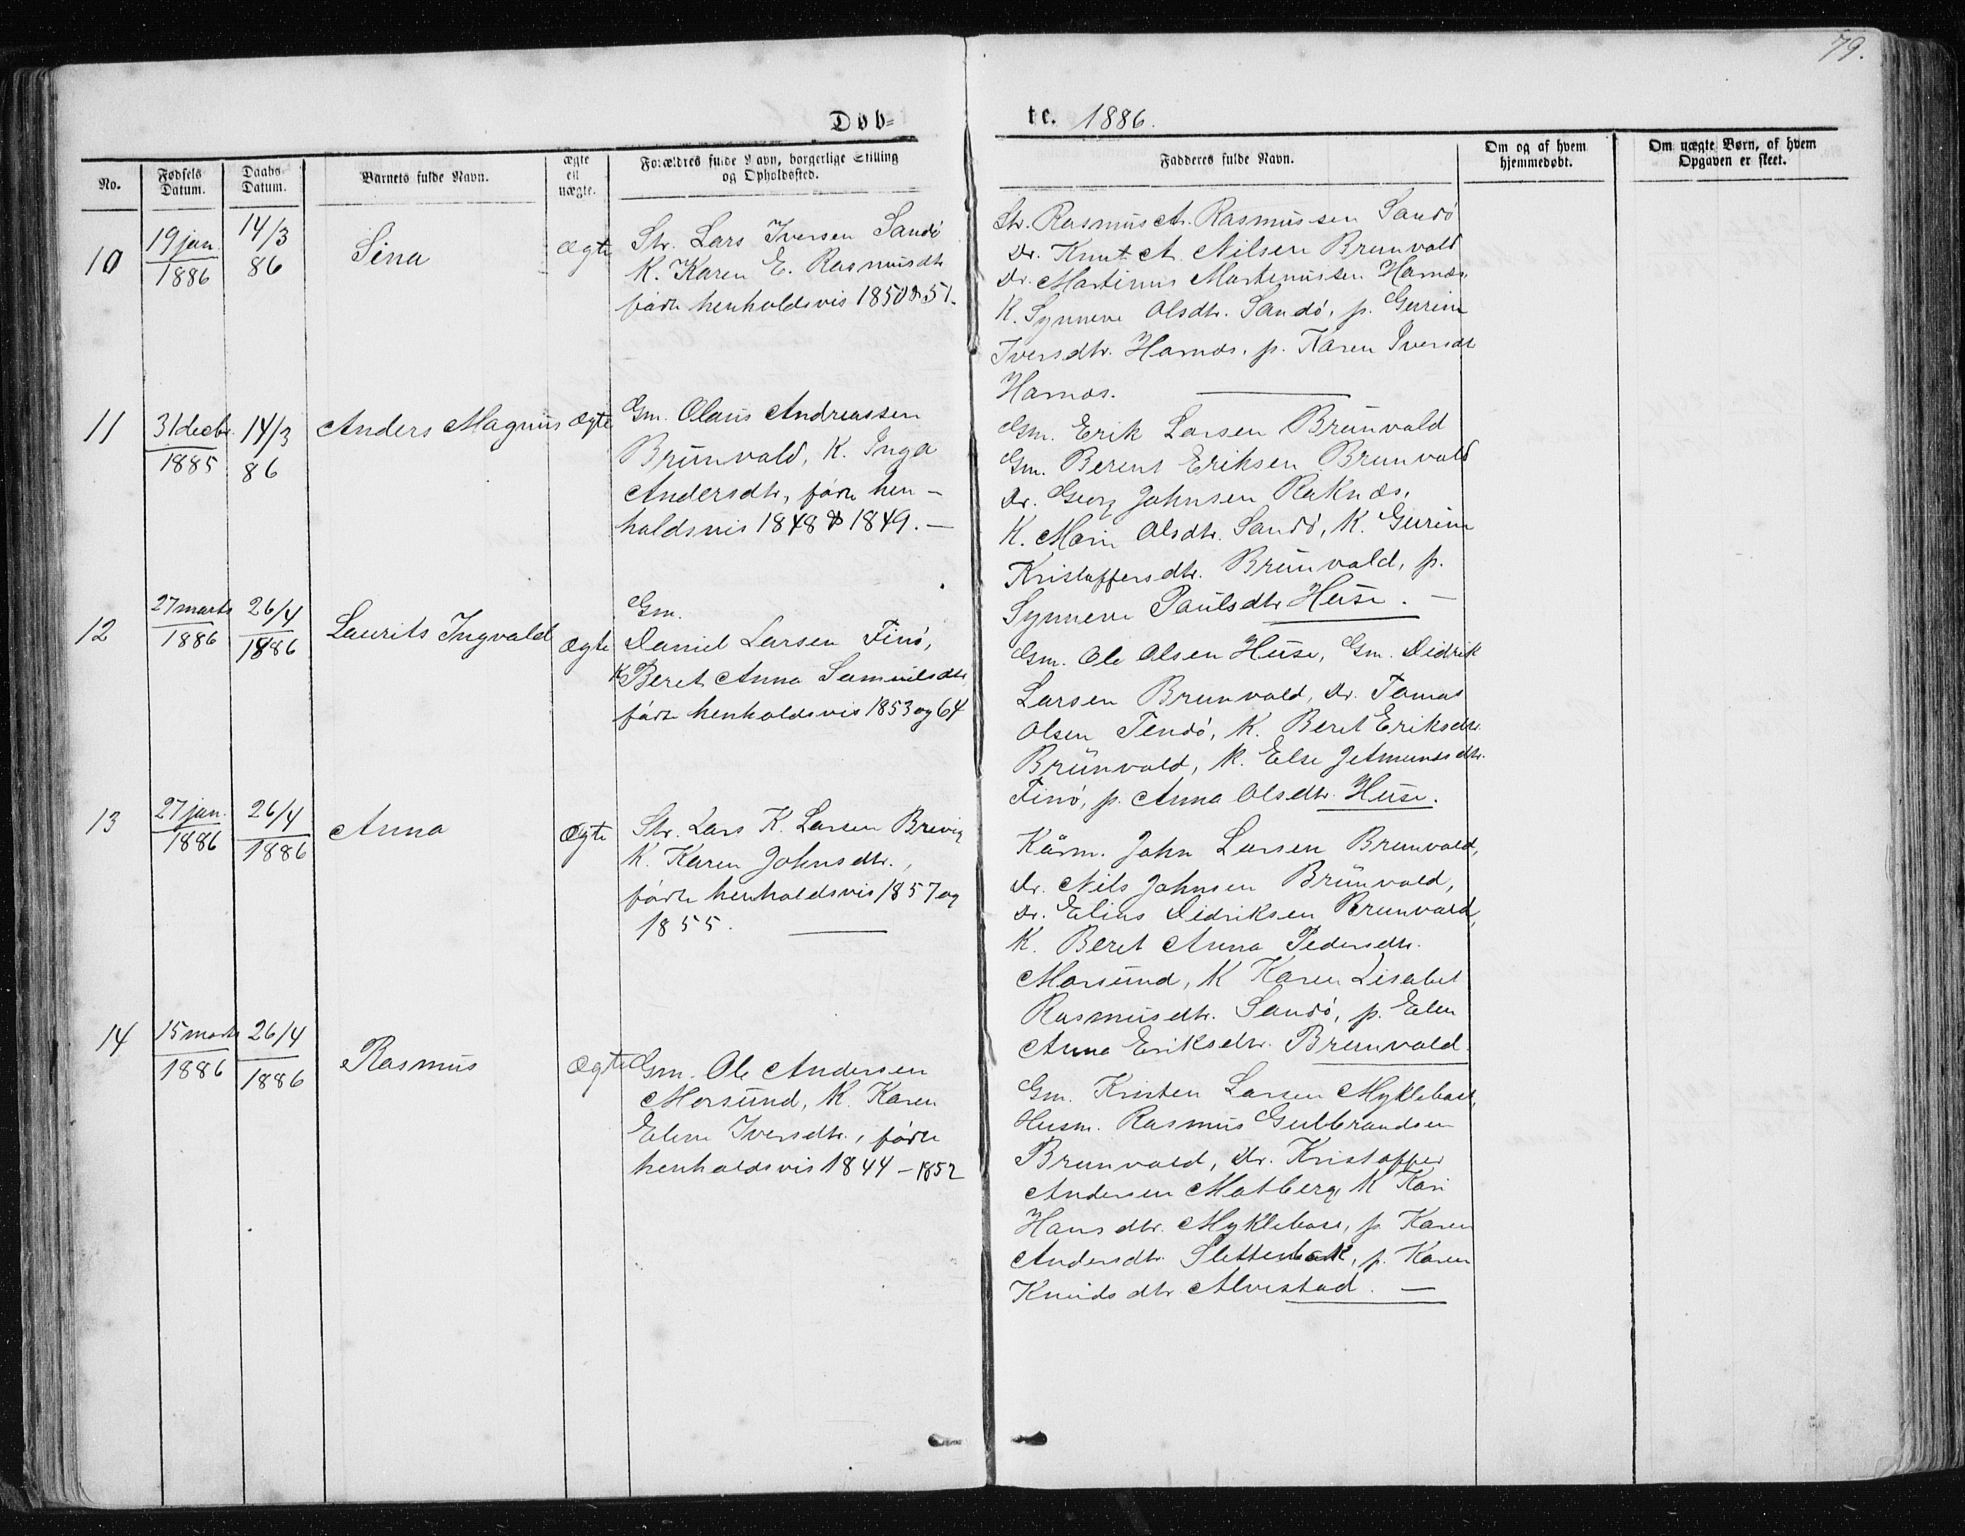 79.
Døb-
te. 1886.
No.
Fødsels Datum.
Daabs Datum.
Barnets fulde Navn.
ægte ell uægte.
Forældres fulde Navn, borgerlige Stilling og Opholdssted.
Fadderes fulde Navn.
Om og af hvem hjemmedøbt.
Om uægte Børn, af hvem Opgaven er skeet.
10
19 jan.
1886
14/3
86
Sina
Ægte
Str. Lars Iversen Sandø
K. Karen E. Rasmusdtr
fødte henholdsvis 1850 & 51.
Str. Rasmus A. Rasmussen Sandø
Dr. Knut A. Nilsen Brunvold
Dr. Martinus Martinussen Harnæs.
K. Synneve Olsdtr. Sandø, p. Gurine
Iversdtr. Harnæs, p. Karen Iversdt
Harnæs.
11
31 decbr.
1885
14/3
86
Anders Magnus
Ægte
Gm. Olaus Andreassen
Brunvold, K. Inga
Andersdtr, fødte hen-
holdsvis 1848 & 1849. —
Gm. Erik Larsen Brunvold
Gm. Berent Eriksen Brunvold
Dr. Georg Johnsen Raknæs,
K. Marie Olsdtr. Sandø, K. Gurine
Kristoffersdtr. Brunvold, p.
Synneve Paulsdtr Huse. —
12
27 marts
1886
26/4
1886
Laurits Ingvald
Ægte
Gm.
Daniel Larsen Finø,
K Beret Anna Samuelsdtr
fødte henholdsvis 1853 og 64
Gm. Ole Olsen Huse, Gm. Didrik
Larsen Brunvold, Dr. Tomas
Olsen Tendø, K. Beret Eriksdtr.
Brunvold, K. Else Jetmundsdtr.
Finø, p. Anna Olsdtr. Huse.
13
27 jan.
1886
26/4
1886
Anna
Ægte
Str. Lars K. Larsen Brevig
K. Karen Johnsdtr.,
fødte henholdsvis 1857 og
1855.
Kårm. John Larsen Brunvold,
Dr. Nils Johnsen Brunvold,
Dr. Elias Didriksen Brunvold,
K. Beret Anna Pedersdtr.
Morsund, K Karen Lisabet
Rasmusdtr. Sandø, p. Elen
Anna Eriksdtr. Brunvold.
14
15 marts
1886
26/4
1886
Rasmus
Ægte
Gm. Ole Andersen
Morsund, K. Karen
Eline Iversdtr., fødte
henholdsvis 1844 – 1852
Gm. Kristen Larsen Myklebost,
Husm. Rasmus Gulbrandsen
Brunvold, Dr. Kristoffer
Andersen Malberg, K Kari
Hansdtr. Myklebost, p Karen
Andersdtr. Slettebak, p. Karen
Knudsdtr. Alvestad. —